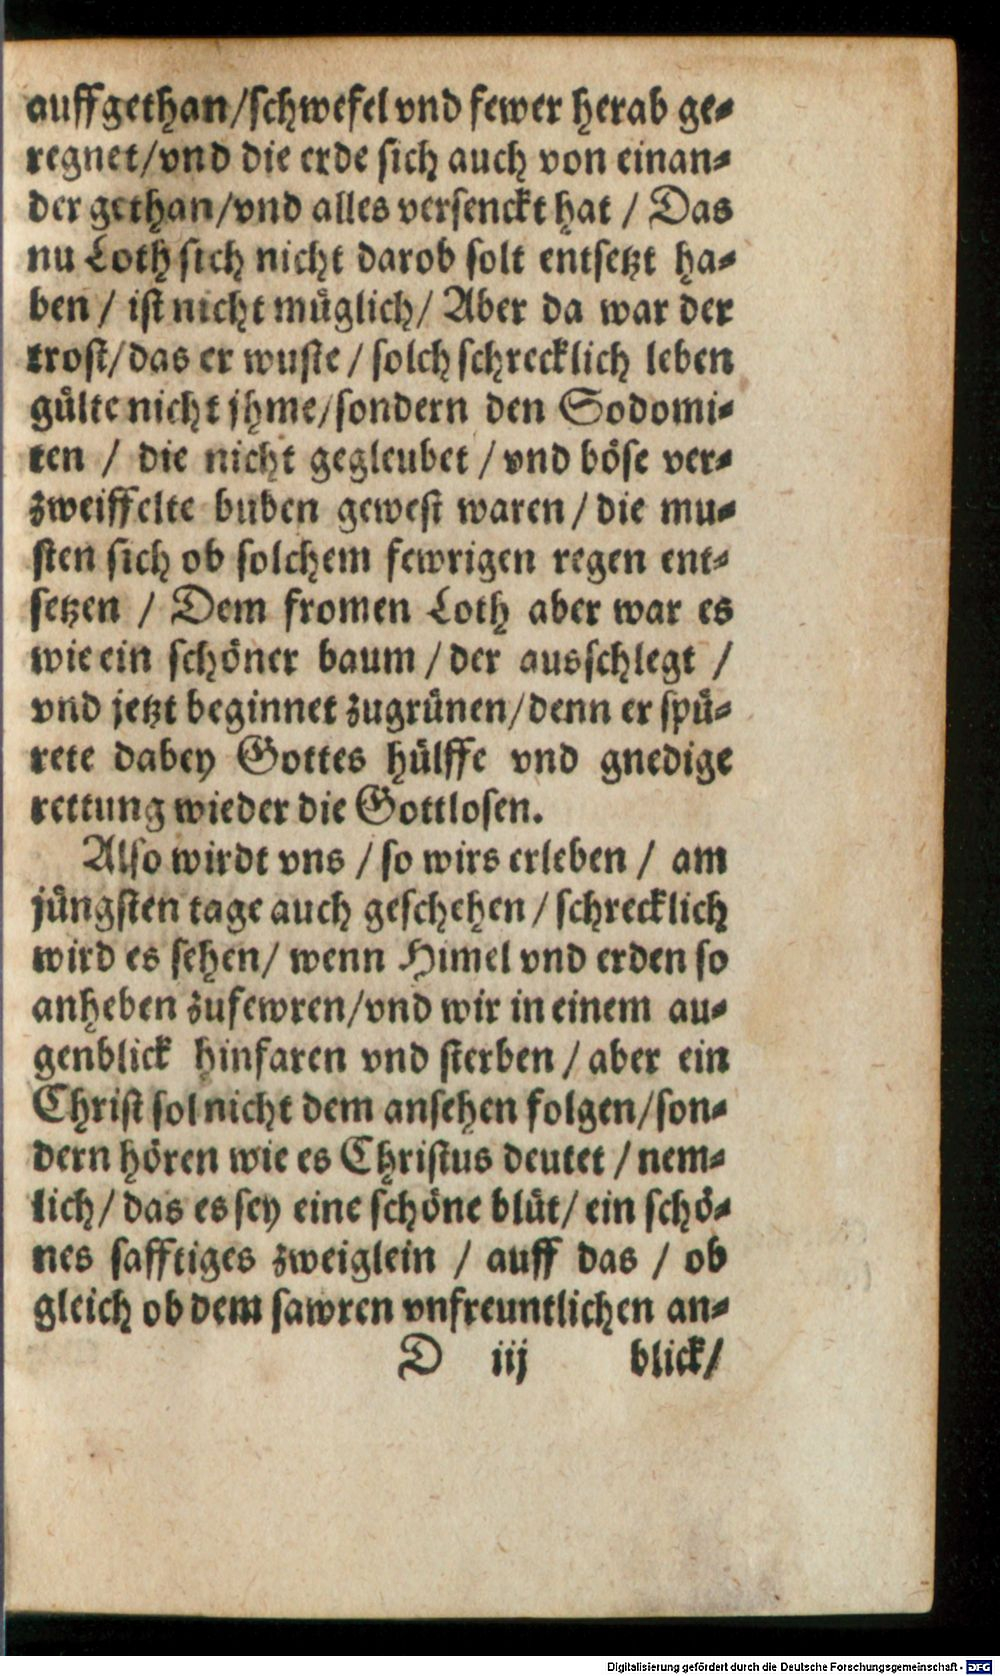 auffgethan/schwefel vnd fewer herab ge-
regnet/vnd die erde sich auch von einan-
der gethan/vnd alles versenckt hat / Das
nu Loth sich nicht darob solt entsetzt ha-
ben / ist nicht müglich/ Aber da war der
trost/das er wuste / solch schrecklich leben
gülte nicht jhme/sondern den Sodomi-
ten / die nicht gegleubet / vnd böse ver-
zweiffelte buben gewest waren / die mu-
sten sich ob solchem fewrigen regen ent-
setzen / Dem fromen Loth aber war es
wie ein schöner baum / der ausschlegt /
vnd jetzt beginnet zugrünen/denn er spü-
rete dabey Gottes hülffe vnd gnedige
rettung wieder die Gottlosen.
Also wirdt vns / so wirs erleben / am
jüngsten tage auch geschehen / schrecklich
wird es sehen/ wenn Himel vnd erden so
anheben zufewren/vnd wir in einem au-
genblick hinfaren vnd sterben / aber ein
Christ sol nicht dem ansehen folgen/son-
dern hören wie es Christus deutet / nem-
lich/ das es sey eine schöne blüt/ ein schö-
nes safftiges zweiglein / auff das / ob
gleich ob dem sawren vnfreuntlichen an-
D iij blick/
Digitalisierung gefördert durch die Deutsche Forschungsgemeinschaft - DFG